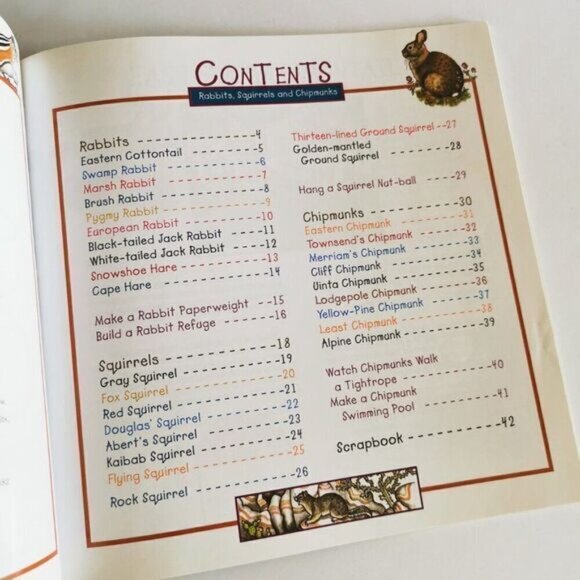 CONTENTS
Rabbits, Squirrels and Chipmunks
Rabbits ----------4
Eastern Cottontail ----------5
Swamp Rabbit ----------6
Marsh Rabbit ----------7
Brush Rabbit ----------8
Pygmy Rabbit ----------9
European Rabbit ----------10
Black-tailed Jack Rabbit ----11
White-tailed Jack Rabbit ----12
Snowshoe Hare ----------13
Cape Hare ----------14
Make a Rabbit Paperweight --15
Build a Rabbit Refuge ------16
Squirrels ----------18
Gray Squirrel ----------19
Fox Squirrel ----------20
Red Squirrel ----------21
Douglas' Squirrel ----------22
Abert's Squirrel ----------23
Kaibab Squirrel ----------24
Flying Squirrel ----------25
Rock Squirrel ----------26
Thirteen-lined Ground Squirrel --27
Golden-mantled
Ground Squirrel ----------28
Hang a Squirrel Nut-ball ----29
Chipmunks ----------30
Eastern Chipmunk ----------31
Townsend's Chipmunk --------32
Merriam's Chipmunk ----------33
Cliff Chipmunk ----------34
Uinta Chipmunk ----------35
Lodgepole Chipmunk --------36
Yellow-Pine Chipmunk ------37
Least Chipmunk ----------38
Alpine Chipmunk ----------39
Watch Chipmunks Walk
a Tightrope ----------40
Make a Chipmunk
Swimming Pool ----------41
Scrapbook ----------42